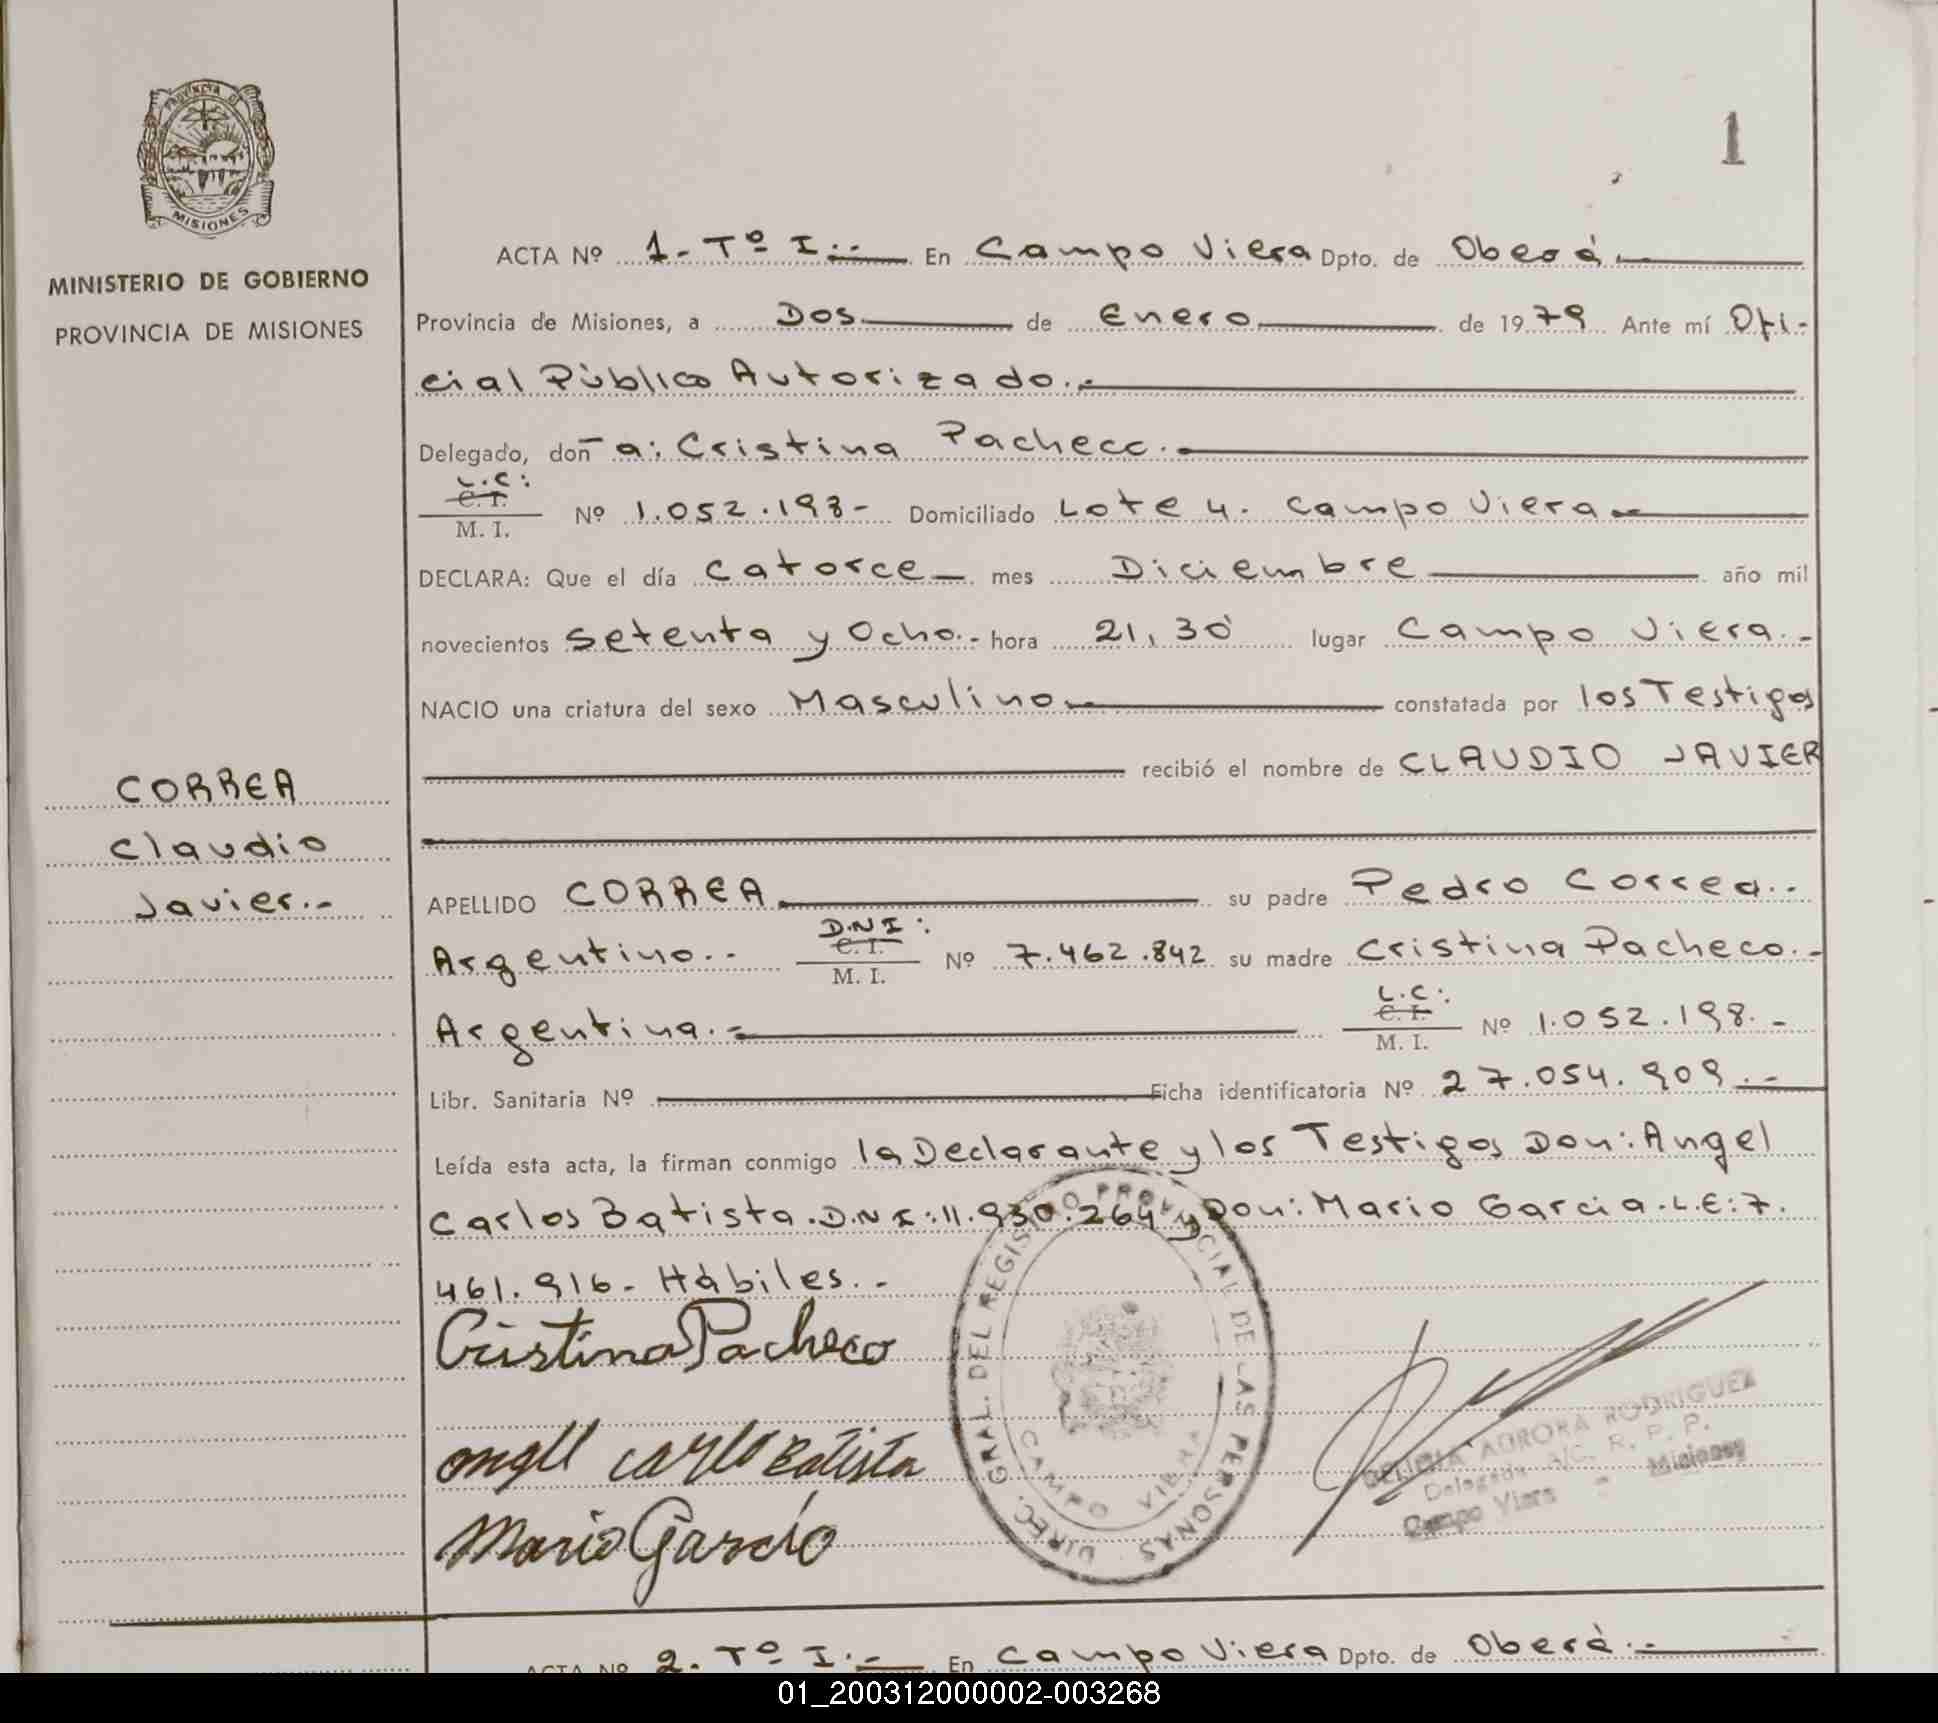 PROVINCIA DE
MISIONES
MINISTERIO DE GOBIERNO
PROVINCIA DE MISIONES
1
ACTA Nº 1.- Tº I.- En Campo Viera Dpto. de Oberá
Provincia de Misiones, a Dos de Enero de 1979 Ante mí Ofi-
cial Público Autorizado.-
Delegado, don a: Cristina Pacheco.-
L.C:
C. I.
M. I.
Nº 1.052.198- Domiciliado Lote 4. Campo Viera
DECLARA: Que el día Catorce mes Diciembre año mil
novecientos Setenta y Ocho.- hora 21,30 lugar Campo Viera.-
NACIO una criatura del sexo Masculino constatada por los Testigos
recibió el nombre de CLAUDIO JAVIER
CORREA
Claudio
Javier.-
APELLIDO CORREA su padre Pedro Correa.-
D.N.I:
C. I.
M. I.
Argentino.- Nº 7.462.842 su madre Cristina Pacheco.-
L.C:
C. I.
M. I.
Argentina.- Nº 1.052.198.-
Libr. Sanitaria Nº Ficha identificatoria Nº 27.054.909.-
Leída esta acta, la firman conmigo la Declarante y los Testigos Don: Angel
Carlos Batista.D.N.I:11.930.264 y Don: Mario Garcia.L.E:7.
461.916- Hábiles.-
Cristina Pacheco
angel carlo Batista
Mario Garcia
DIREC. GRAL. DEL REGISTRO PROVINCIAL DE LAS PERSONAS
CAMPO VIERA
AURORA RODRIGUEZ
Delegada A/C. R. P. P.
Campo Viera - Misiones
ACTA Nº 2.- Tº I.- En Campo Viera Dpto. de Oberá.-
01_200312000002-003268